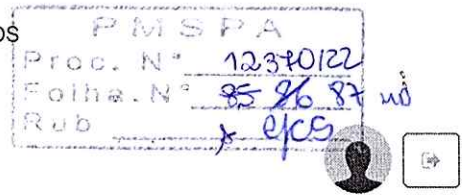 os
PMSPA
Proc. Nº 12370/22
Folha. Nº 85 86 87
Rub